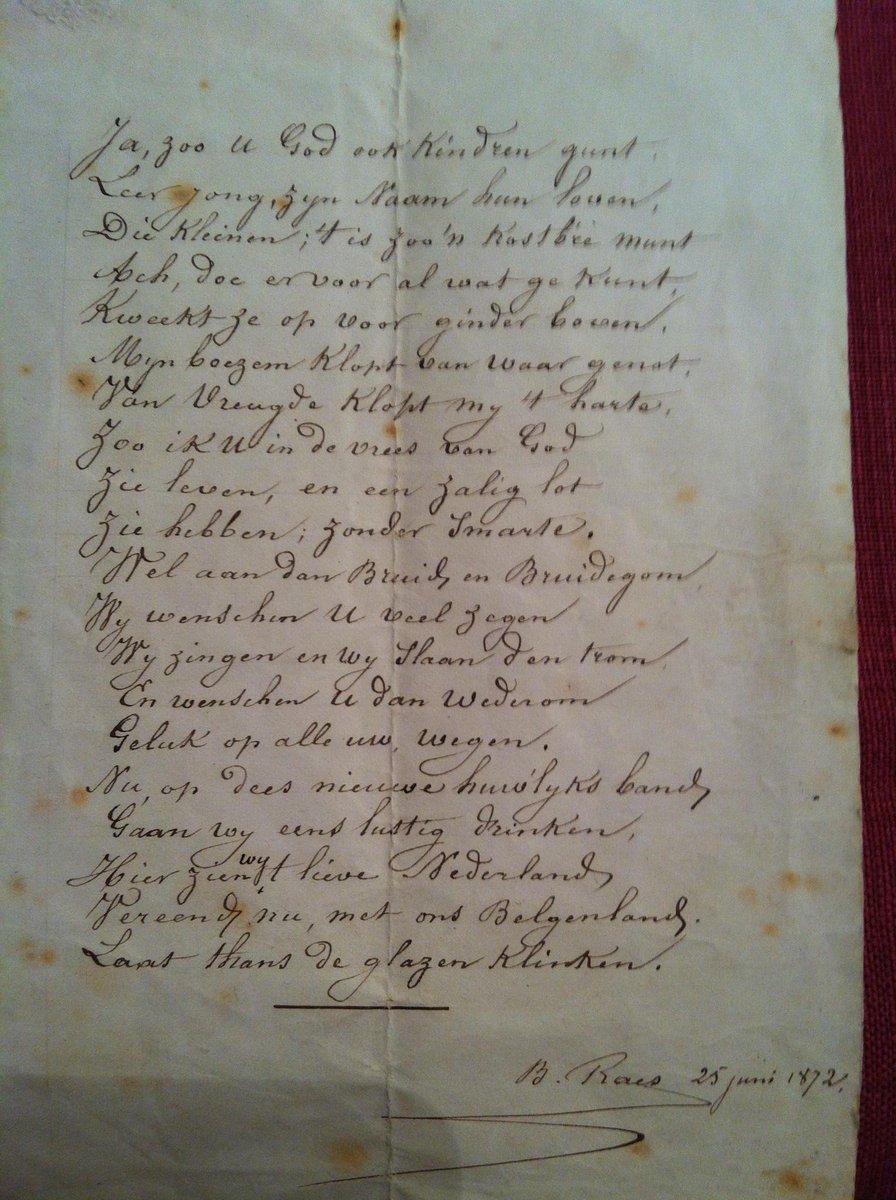 Ja, zoo U God ook Kindren gunt,
Leer jong, zyn Naam hun loven,
Die Kleinen; 't is zoo'n Kostb're munt
Ach, doe er voor al wat ge Kunt,
Kweekt ze op voor ginder boven,
Myn boezem Klopt van waar genot,
Van Vreugde Klopt my 't harte,
Zoo ik U in de vrees van God
Zie leven, en een zalig lot
Zie hebben; zonder Smarte.
Wel aan dan Bruid, en Bruidegom,
Wy wenschen U veel zegen
Wy zingen en wy Slaan den trom,
En wenschen U dan Wederom
Geluk op alle uw, wegen.
Nu, op dees nieuwe huw'lyks band,
Gaan wy eens lustig drinken,
Hier zien wy 't lieve Nederland,
Vereend, nu, met ons Belgenland.
Laat thans de glazen Klinken.
B. Raes 25 juni 1872.